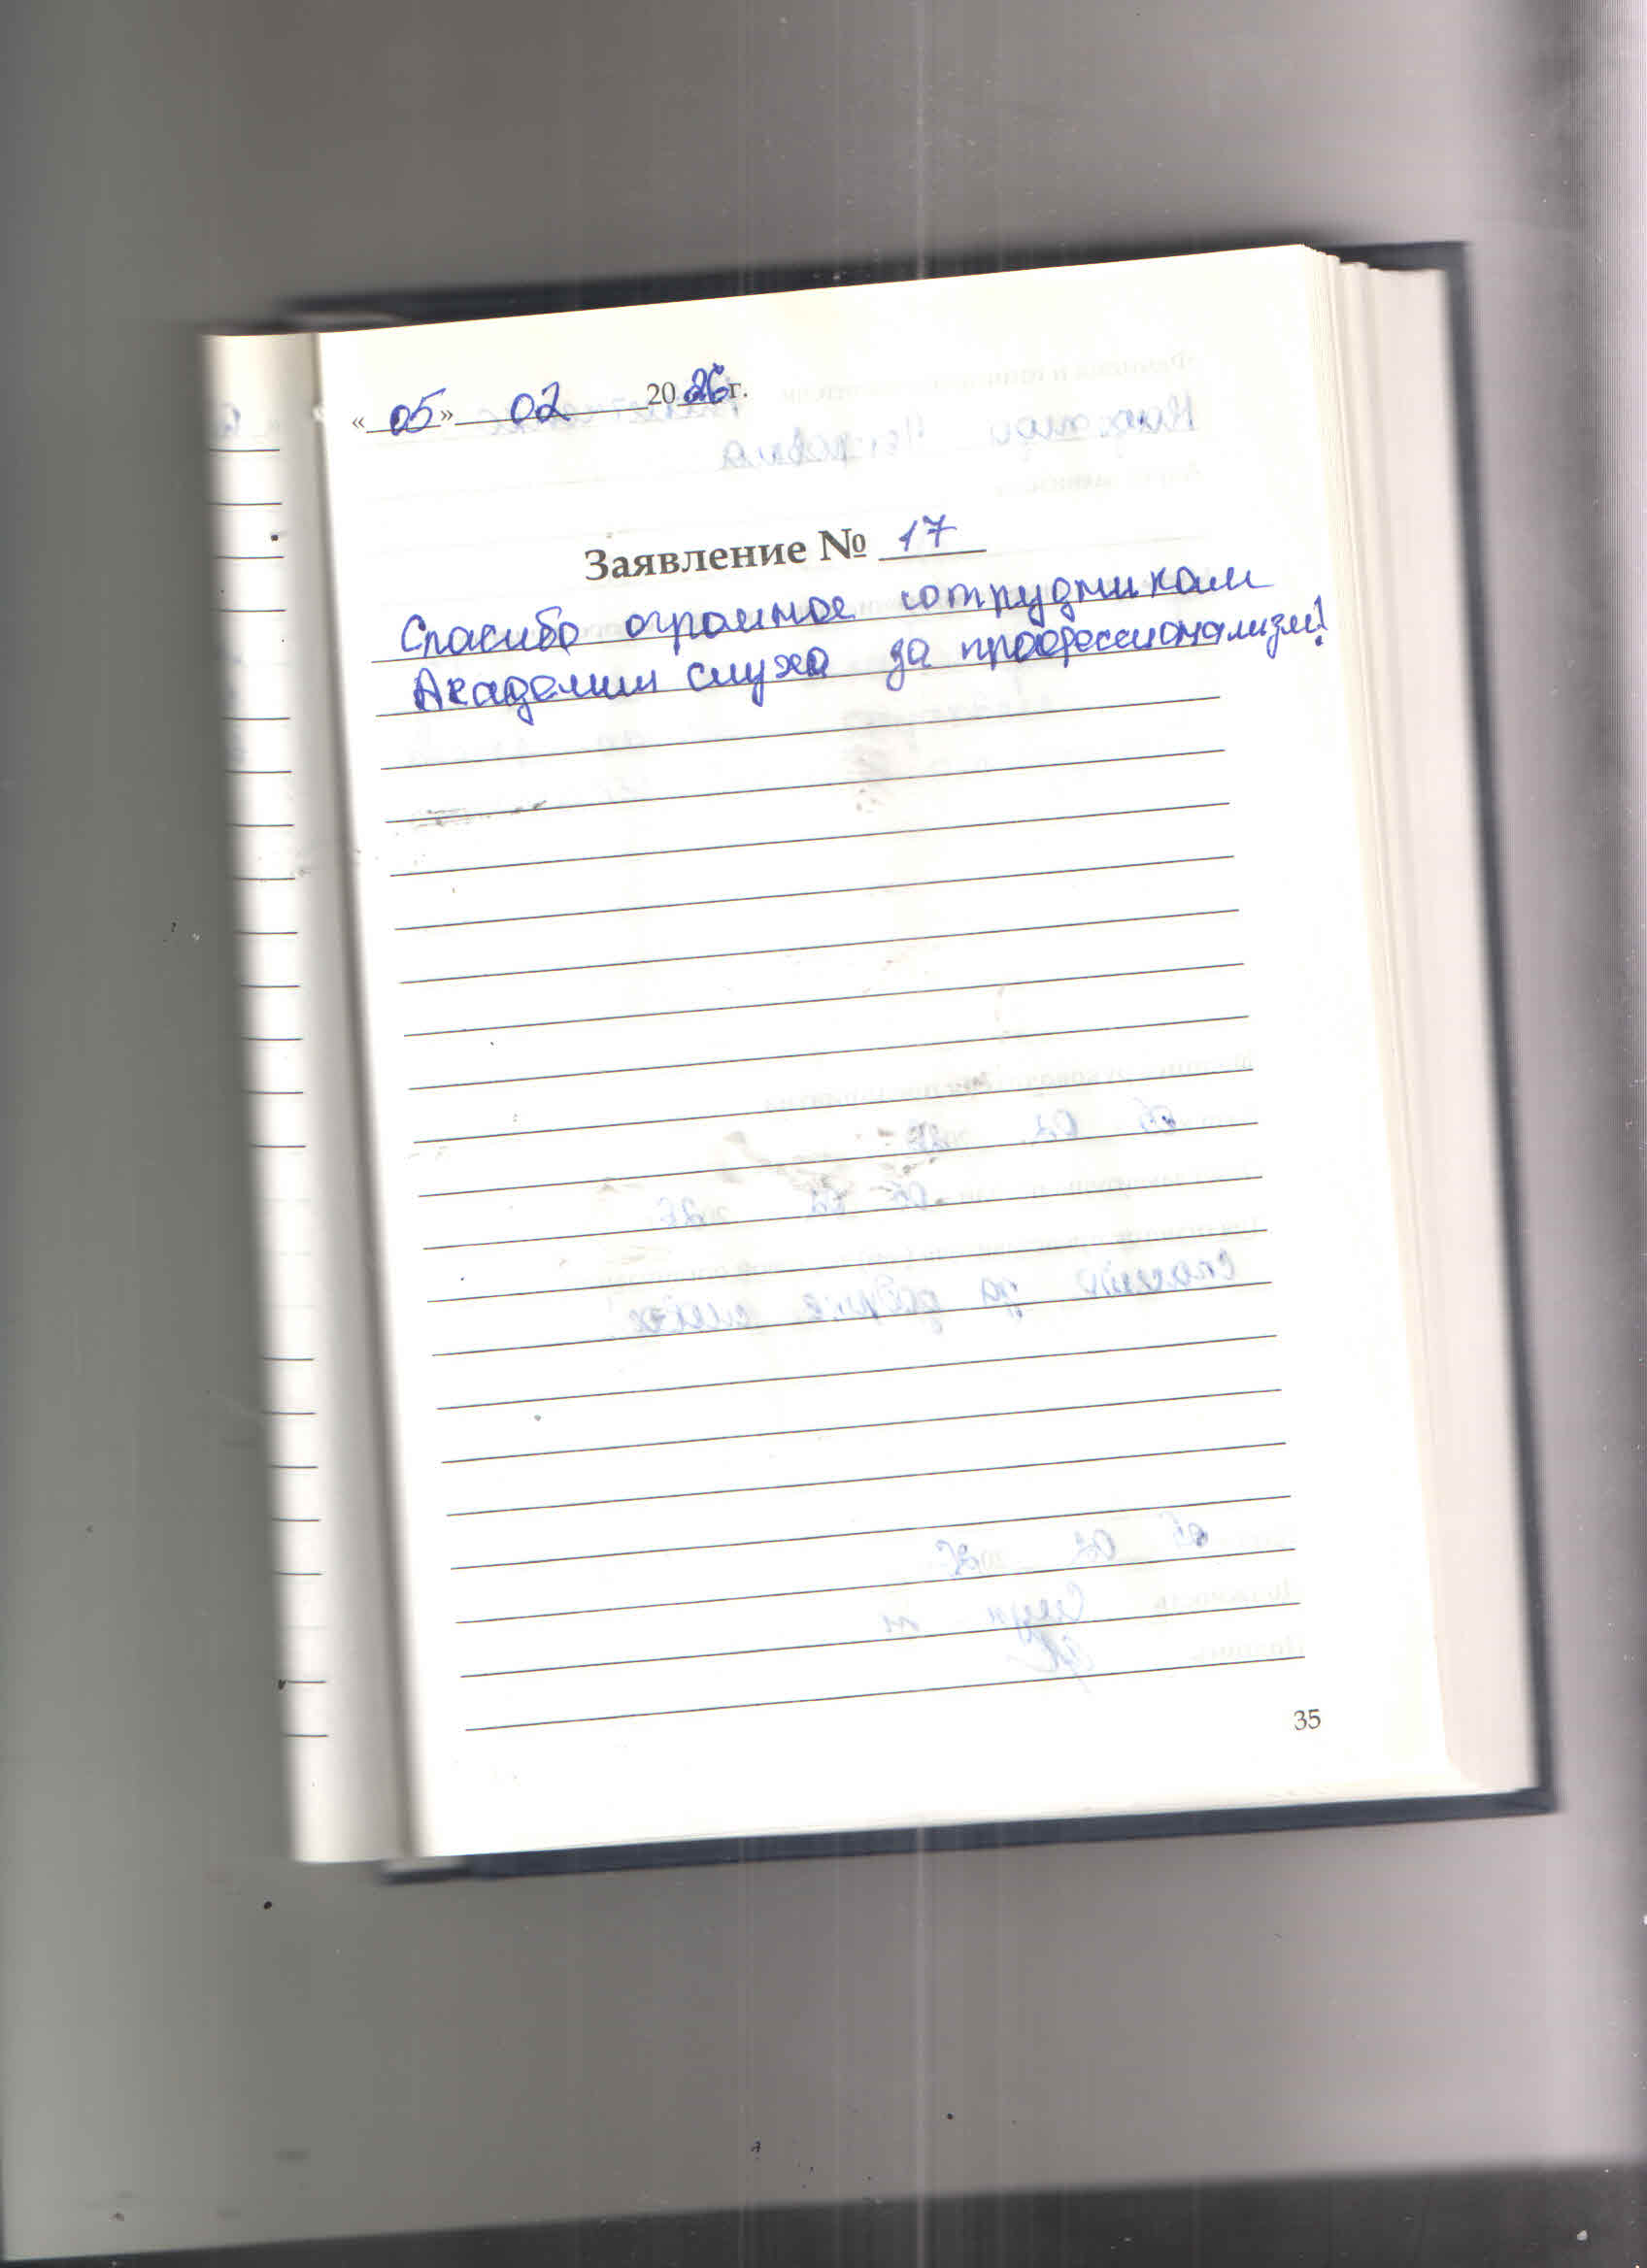 « 05 » 02 2026 г.
Заявление № 17
Спасибо огромное сотрудникам
Академии слуха за профессионализм!
35